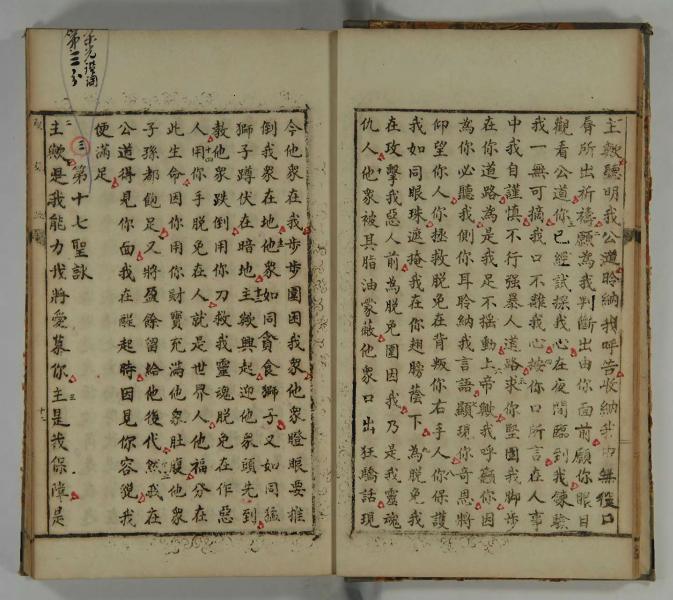 主歟聽明我公道聆納我呼告收納我由無口
唇所出祈禱願為我判斷出由你面前願你眼目
觀看公道你已經試探我心在夜間臨到我煉驗
我一無可摘我口不離我心按你口所言在人事
中我自謹慎不行强暴人道路求你堅固我脚步
在你道路為是我足不搖動上帝歟我呼籲你因
為你必聽我側你耳聆納我言語顯現你奇恩將
仰望你人你拯救脫免在背叛你右手人你保護
我如同眼珠遮掩我在你翅膀蔭下為脫免我
在攻擊我惡人前為脫免圍困我乃是我靈魂
仇人他衆被其脂油蒙蔽他衆口出狂驕話現
今他衆在我步步圍困我衆他衆瞪眼要推
倒我衆在地他衆如同貪食獅子又如同猛
獅子蹲伏在暗地主歟興起迎他衆頭先到
敎他衆跌倒用你刀救我靈魂脫免在作惡
人用你手脫免在人就是世界人他福分在
此生命因你用你財寶充滿他衆肚腹他衆
子孫都飽足又將盈餘留給他後代然我在
公道得見你面我在醒起時因見你容貌我
便滿足
三第十七聖詠
主歟是我能力我將愛慕你主是我保障是
第三分